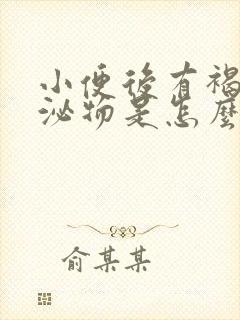 小便後有褐
泌物是怎麼
俞某某